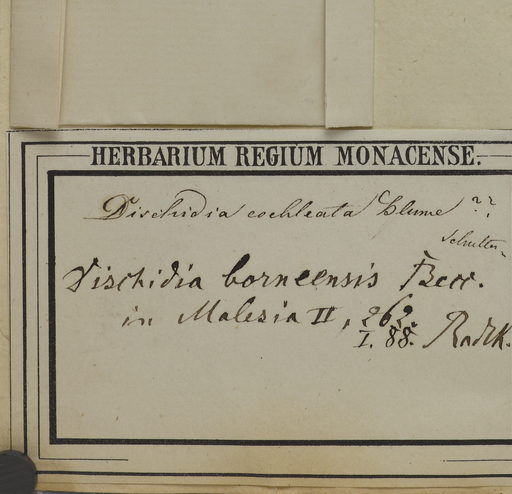 HERBARIUM REGIUM MONACENSE.
Dischidia cochleata Blume ??
Dischidia borneensis Becc.
in Malesia II, 262
I. 88. Radlk.